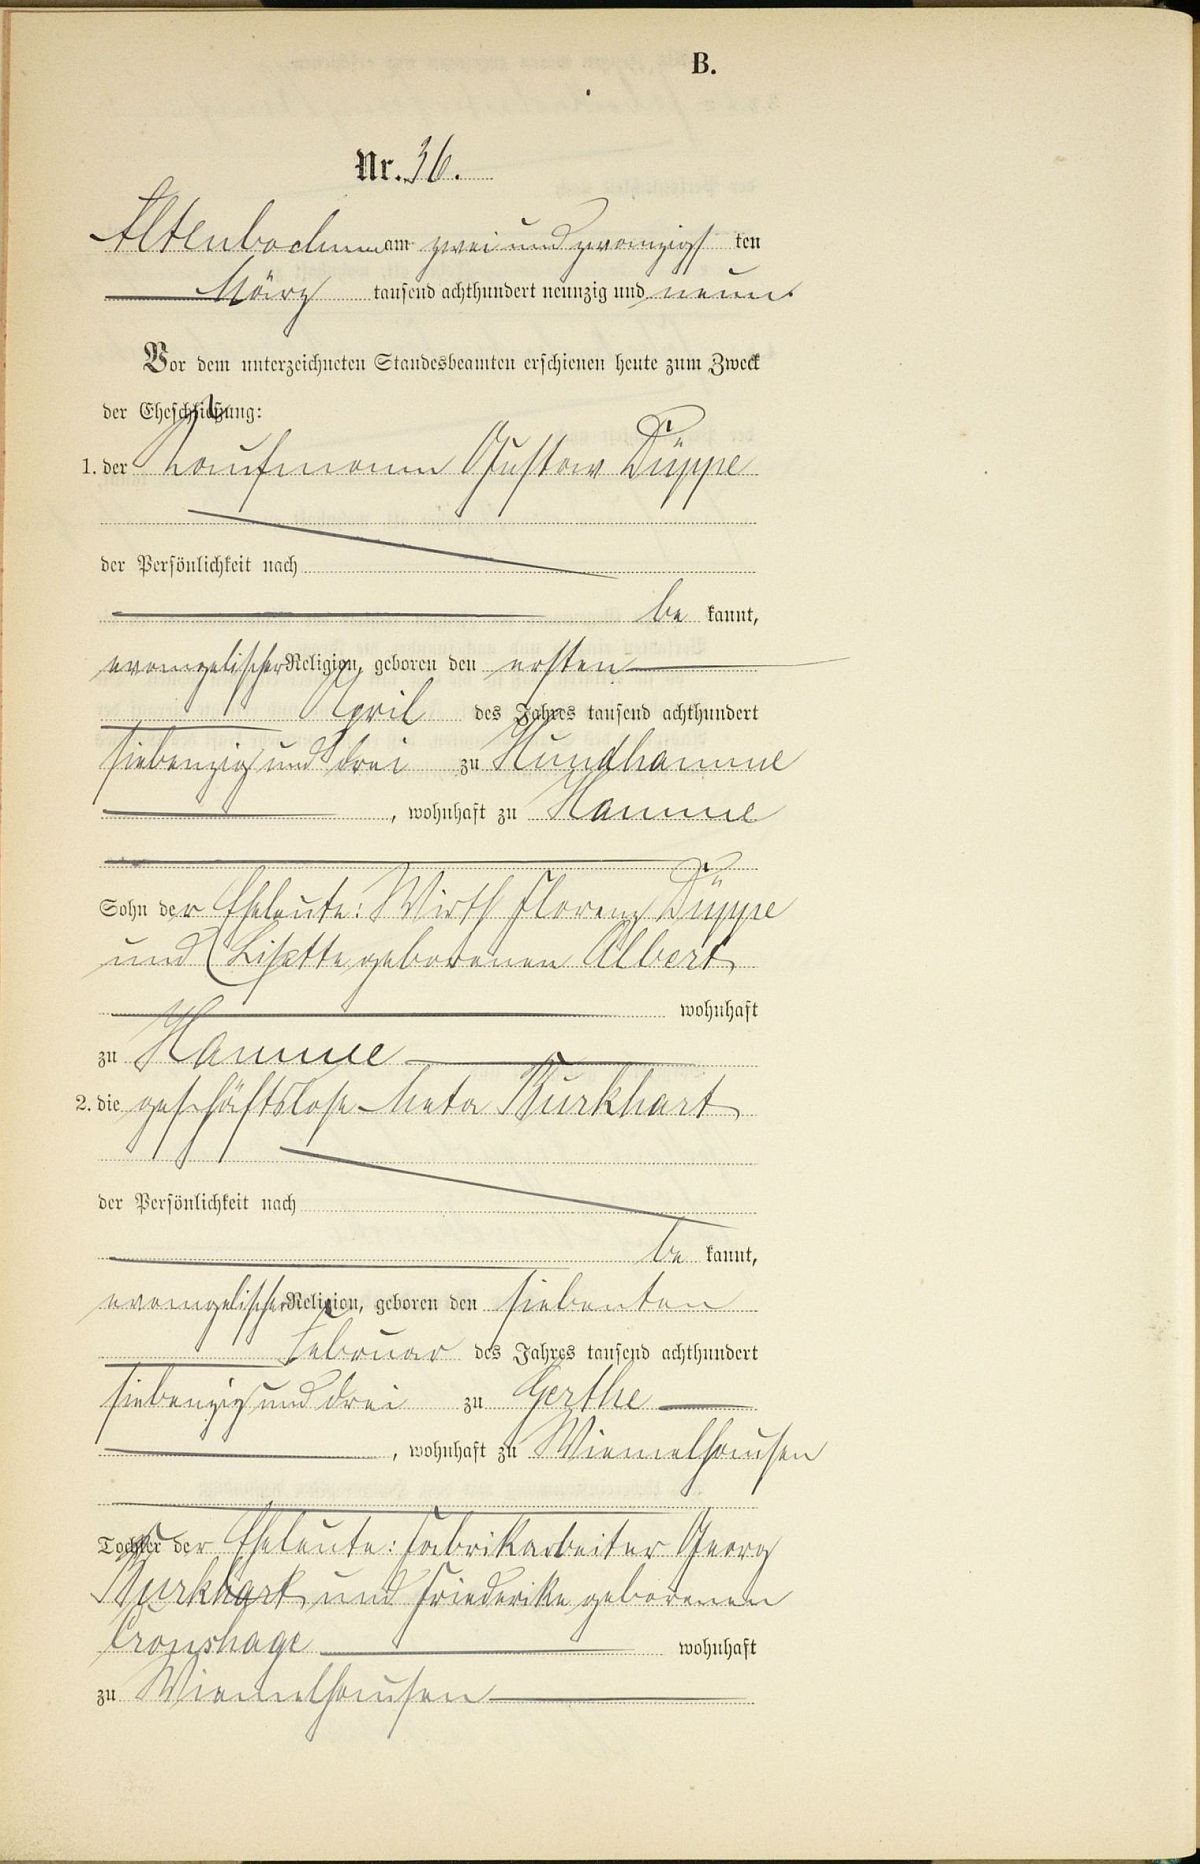 B.
Nr. 36.
Altenbochum am zwei und zwanzigsten
März tausend achthundert neunzig und neun.
Vor dem unterzeichneten Standesbeamten erschienen heute zum Zweck
der Eheschließung:
1. der Kaufmann Gustav Düppe
der Persönlichkeit nach
be kannt,
evangelischer Religion, geboren den ersten
April des Jahres tausend achthundert
siebenzig und drei zu Hundhamme
, wohnhaft zu Hamme
Sohn der Eheleute: Wirth Florenz Düppe
und Lisette geborenen Albert
wohnhaft
zu Hamme
2. die geschäftslose Meta Burkhart
der Persönlichkeit nach
be kannt,
evangelischer Religion, geboren den siebenten
Februar des Jahres tausend achthundert
siebenzig und drei zu Gerthe
, wohnhaft zu Wiemelhausen
Tochter der Eheleute: Fabrikarbeiter Georg
Burkhart und Friederike geborenen
Cronshage wohnhaft
zu Wiemelhausen